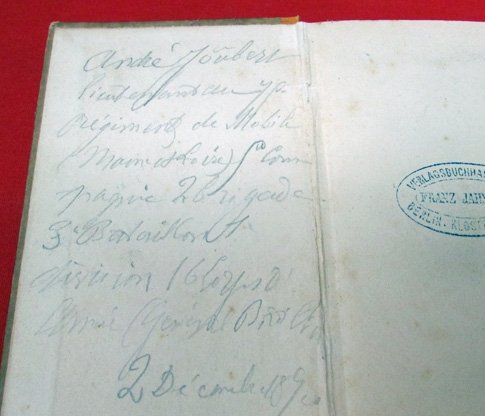 André Joûbert
lieutenant au
Régiment de Mobile
(Maine et Loire) 5e Com
pagnie 2 brigade
3e Bataillon
division 16 Corps d'
Armée (Général
2 Décembre 1870
VERLAGSBUCHHA
FRANZ JAH
BERLIN-KLOS